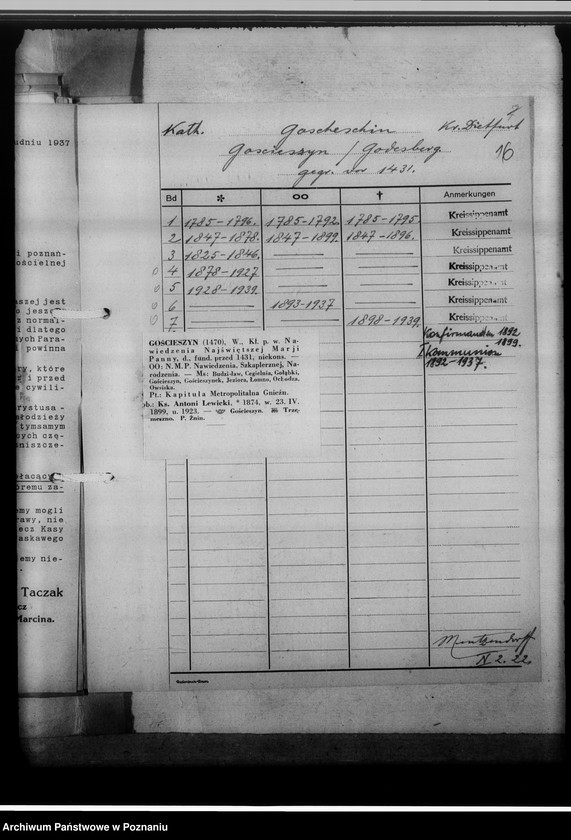 7
Kath. Goscheschin Kr. Dietfurt
Goscieszyn / Godesberg. 16
gegr. vor 1431.
Bd * oo † Anmerkungen
1 1785-1796. 1785-1792. 1785-1795 Kreissippenamt
2 1847-1878. 1847-1899. 1847-1896. Kreissippenamt
3 1825-1846. Kreissippenamt
0 4 1878-1927 Kreissippenamt
0 5 1928-1939. Kreissippenamt
0 6 1893-1937 Kreissippenamt
0 7 1898-1939. Kreissippenamt
Konfirmanden 1892
1899.
I Kommunion
1892-1937.
GOŚCIESZYN (1470), W., Kl. p. w. Na-
wiedzenia Najświętszej Marji
Panny, d., fund. przed 1431, niekons. —
OO: N. M. P. Nawiedzenia, Szkaplerznej, Na-
rodzenia. — Ms: Budzisław, Cegielnia, Gołąbki,
Gościeszyn, Gościeszynek, Jeziora, Ochodza,
Owsiska.
Pt.: Kapituła Metropolitalna Gnieźn.
Ks. Antoni Lewicki, * 1874, w. 23. IV.
1899, u. 1923. — Gościeszyn. Trzę-
P. Żnin.
udniu 1937
i poznan-
ościelnej
aszej jest
z normal-
i dlatego
nych Para-
i powinna
ry, które
i przed
cywili-
rystusa -
łodzieży
tymsamym
cych czę-
niszcze-
oremu za-
emy mogli
rawy, nie
ecz Kasy
askawego
emy nie-
Taczak
cz
Marcina.
2. 22
Archiwum Państwowe w Poznaniu